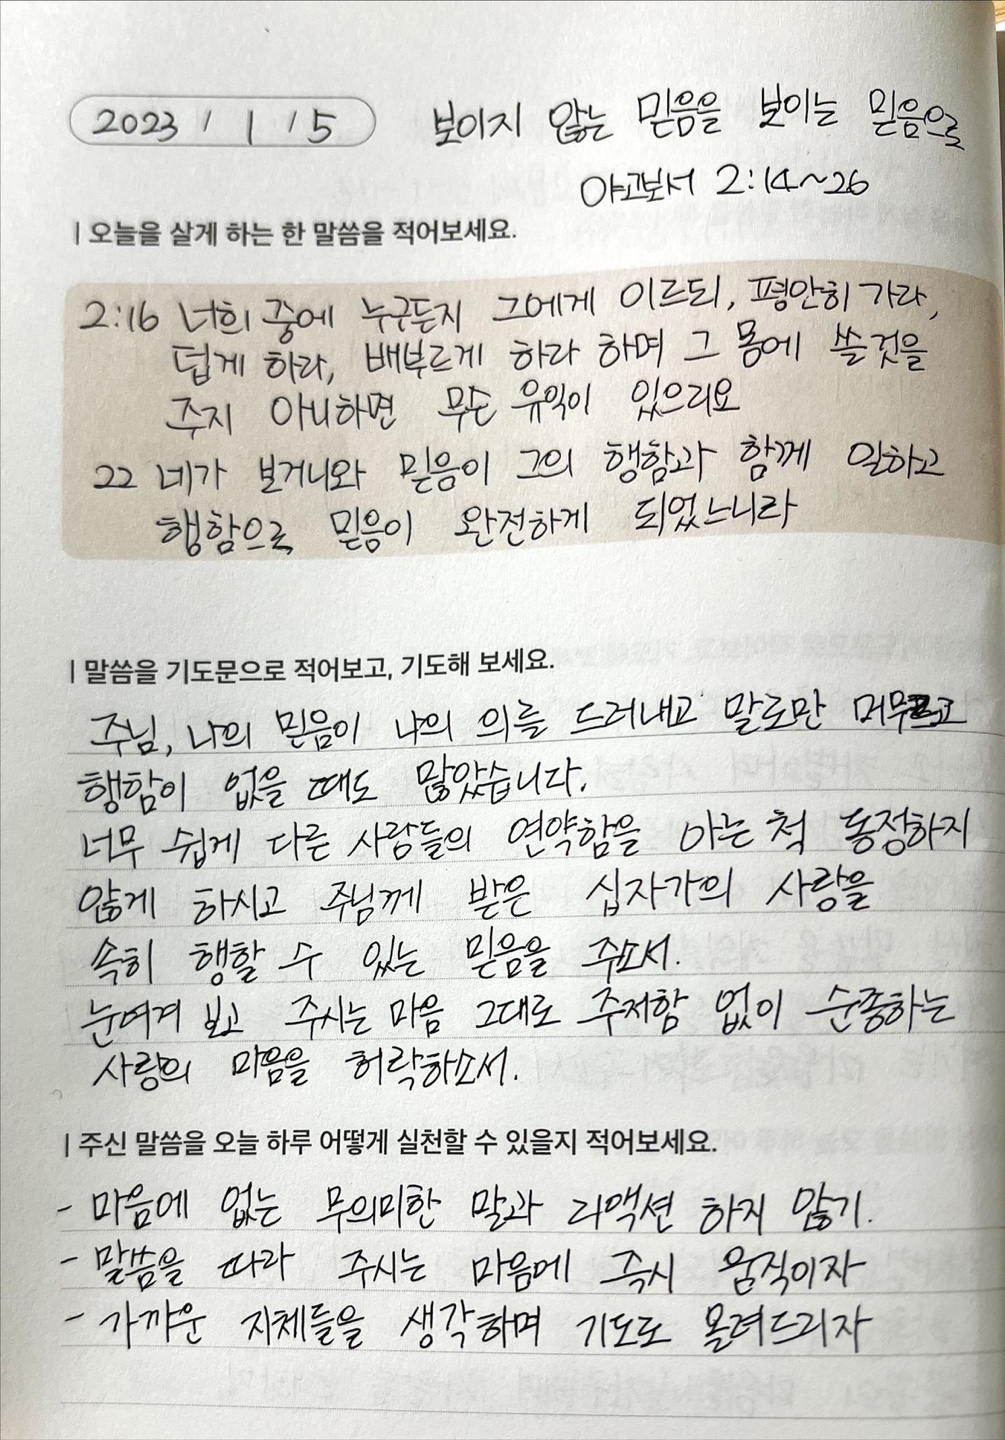 2023 / 1 / 5 보이지 않는 믿음을 보이는 믿음으로
야고보서 2:14~26
| 오늘을 살게 하는 한 말씀을 적어보세요.
2:16 너희 중에 누구든지 그에게 이르되, 평안히 가라,
덥게 하라, 배부르게 하라 하며 그 몸에 쓸 것을
주지 아니하면 무슨 유익이 있으리요
22 네가 보거니와 믿음이 그의 행함과 함께 일하고
행함으로 믿음이 완전하게 되었느니라
| 말씀을 기도문으로 적어보고, 기도해 보세요.
주님, 나의 믿음이 나의 의를 드러내고 말로만 머무르고
행함이 없을 때도 많았습니다.
너무 쉽게 다른 사람들의 연약함을 아는 척 동정하지
않게 하시고 주님께 받은 십자가의 사랑을
속히 행할 수 있는 믿음을 주소서.
눈여겨 보고 주시는 마음 그대로 주저함 없이 순종하는
사랑의 마음을 허락하소서.
| 주신 말씀을 오늘 하루 어떻게 실천할 수 있을지 적어보세요.
- 마음에 없는 무의미한 말과 리액션 하지 않기.
- 말씀을 따라 주시는 마음에 즉시 움직이자
- 가까운 지체들을 생각하며 기도로 올려드리자